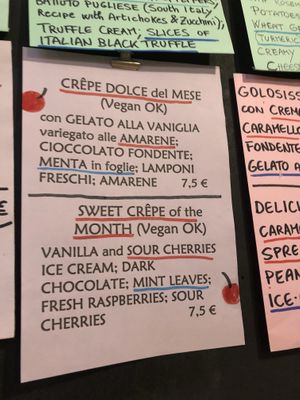 BATTUTO PUGLIESE (South Italy
Recipe with Artichokes & Zucchini);
TRUFFLE CREAM; SLICES OF
ITALIAN BLACK TRUFFLE
POTATOE
WHEAT G
(TURMERIC
CREAMY
CHEES
CRÊPE DOLCE del MESE
(Vegan OK)
con GELATO ALLA VANIGLIA
variegato alle AMARENE;
CIOCCOLATO FONDENTE;
MENTA in foglie; LAMPONI
FRESCHI; AMARENE 7,5 €
SWEET CRÊPE of the
MONTH (Vegan OK)
VANILLA and SOUR CHERRIES
ICE CREAM; DARK
CHOCOLATE; MINT LEAVES;
FRESH RASPBERRIES; SOUR
CHERRIES 7,5 €
GOLOSISS
CON CREM
CARAMELLO
FONDENTE
GELATO A
DELICI
CARAME
SPRE
PEAN
ICE-